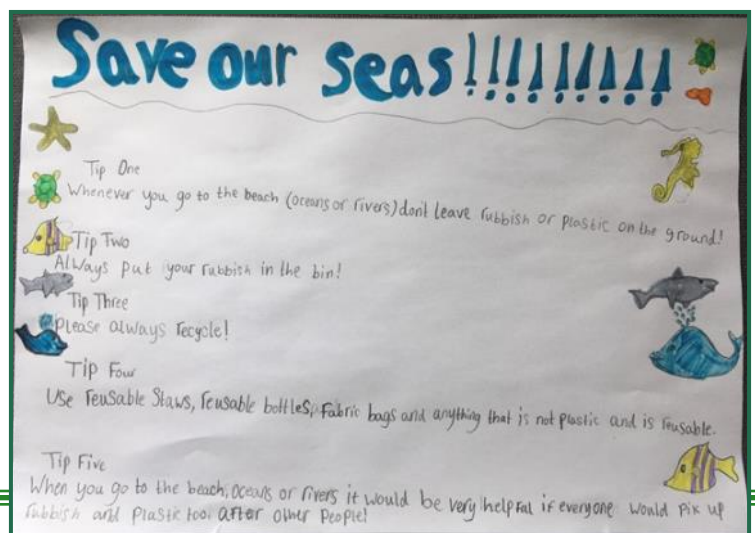 Save our seas!!!!!!!!!
Tip One
Whenever you go to the beach (oceans or rivers) dont leave rubbish or plastic on the ground!
Tip Two
Always put your rubbish in the bin!
Tip Three
Please always recycle!
Tip Four
Use reusable Staws, reusable bottles, fabric bags and anything that is not plastic and is reusable.
Tip Five
When you go to the beach, oceans or rivers it would be very helpful if everyone would pix up
rubbish and plastic too. after other people!